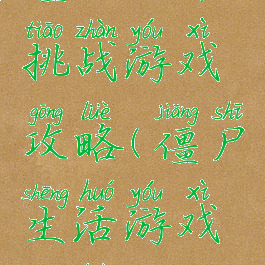 tiǎo zhàn yóu xì
挑战游戏
gōng lüè jiāng shī
攻略(僵尸
shēng huó yóu xì
生活游戏